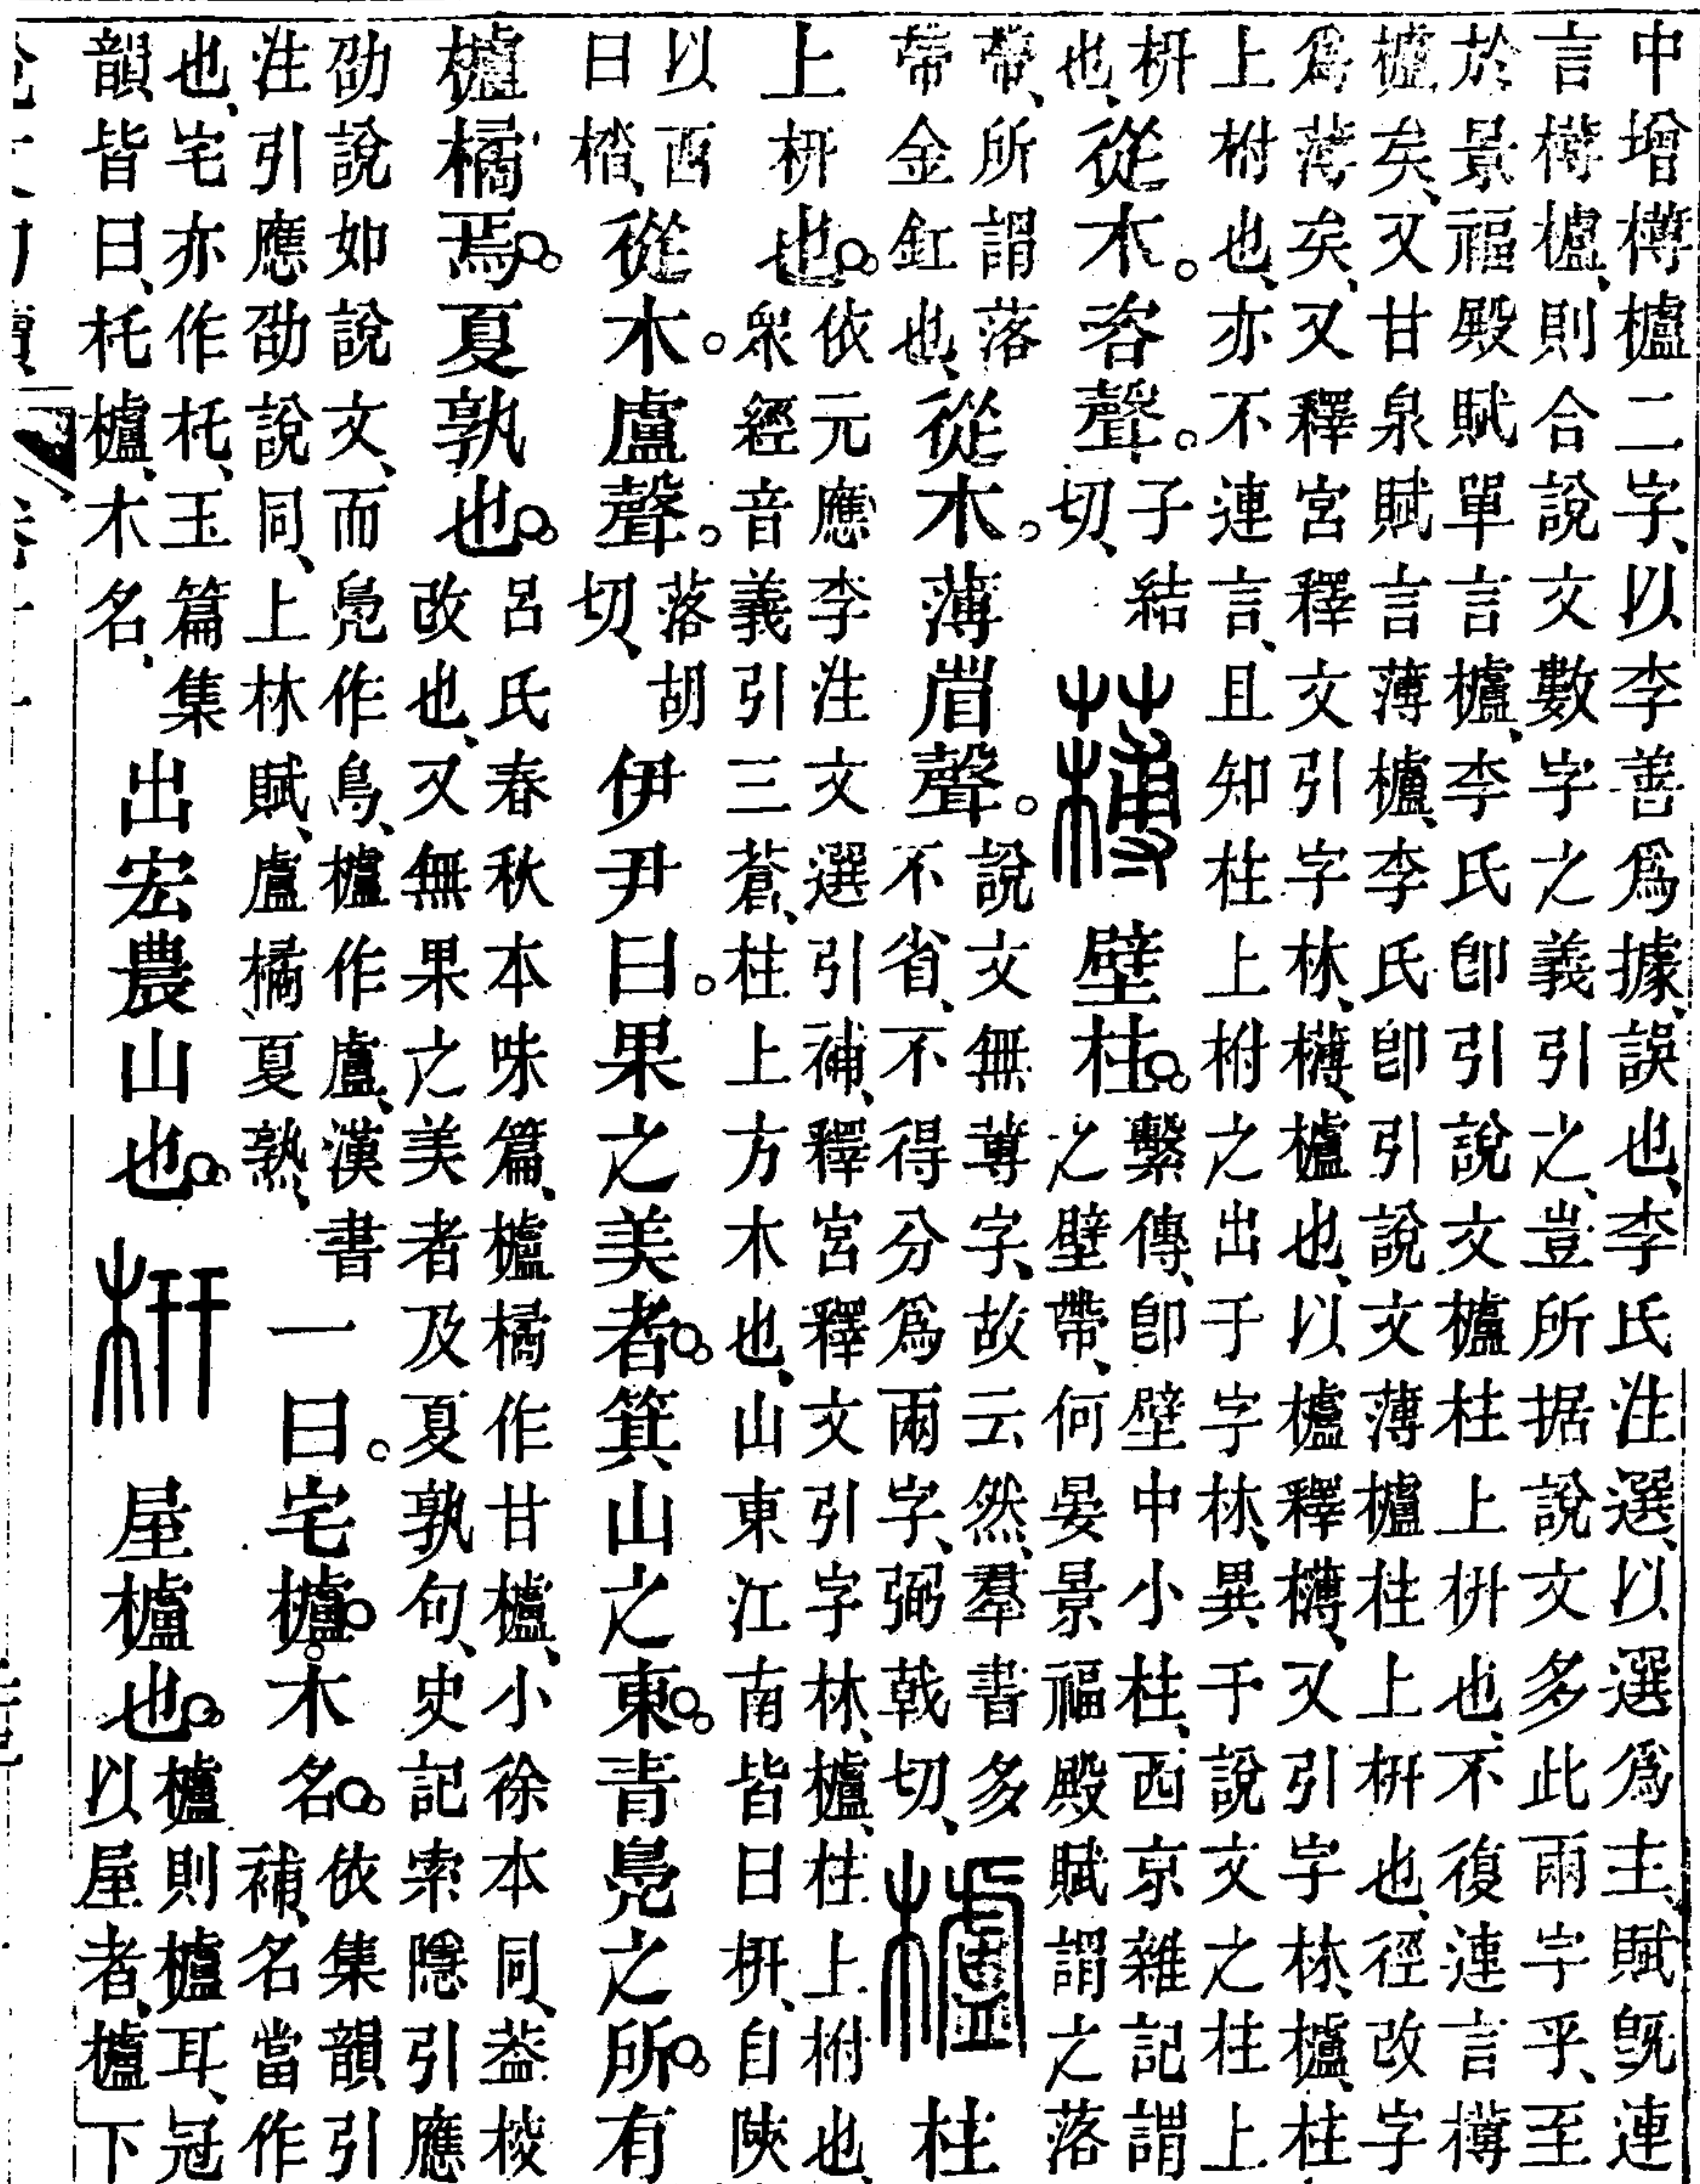 中增欂櫨二字、以李善爲據、誤也、李氏注選、以選爲主、賦旣連
言欂櫨、則合說文數字之義引之、豈所据說文多此兩字乎、至
於景福殿賦單言櫨、李氏卽引說文櫨柱上枅也、不復連言欂
櫨矣、又甘泉賦言薄櫨、李氏卽引說文薄櫨柱上枅也、徑改字
爲薄矣、又釋宮釋文引字林、欂、櫨也、以櫨釋欂、又引字林、櫨、柱上
上柎也、亦不連言、且知柱上柎之出于字林、異于說文之柱上
枅也、從木。咨聲。子結切、欂 壁柱。繫傳、卽壁中小柱、西京雜記謂之壁帶、何晏景福殿賦謂之落
帶、所謂落帶金釭也、從木。薄省聲。說文無䔿字、故云然、羣書多不省、不得分爲兩字、弼戟切、櫨 柱
上枅也。依元應李注文選引補、釋宮釋文引字林、櫨、柱上柎也、衆經音義引三蒼、柱上方木也、山東江南皆曰枅、自陝
以西曰楷、從木。盧聲。落胡切、伊尹曰。果之美者。箕山之東。青鳧之所。有
櫨橘焉。夏孰也。呂氏春秋本味篇、櫨橘作甘櫨、小徐本同、葢校改也、又無果之美者及夏孰句、史記索隱引應
劭說如說文、而鳧作鳥、櫨作盧、漢書注引應劭說同、上林賦、盧橘夏熟、一曰。宅櫨。木名。依集韻引補、名當作
也、宅亦作杔、玉篇集韻皆曰、杔櫨、木名、出宏農山也。枅 屋櫨也。櫨則櫨耳、冠以屋者、櫨下